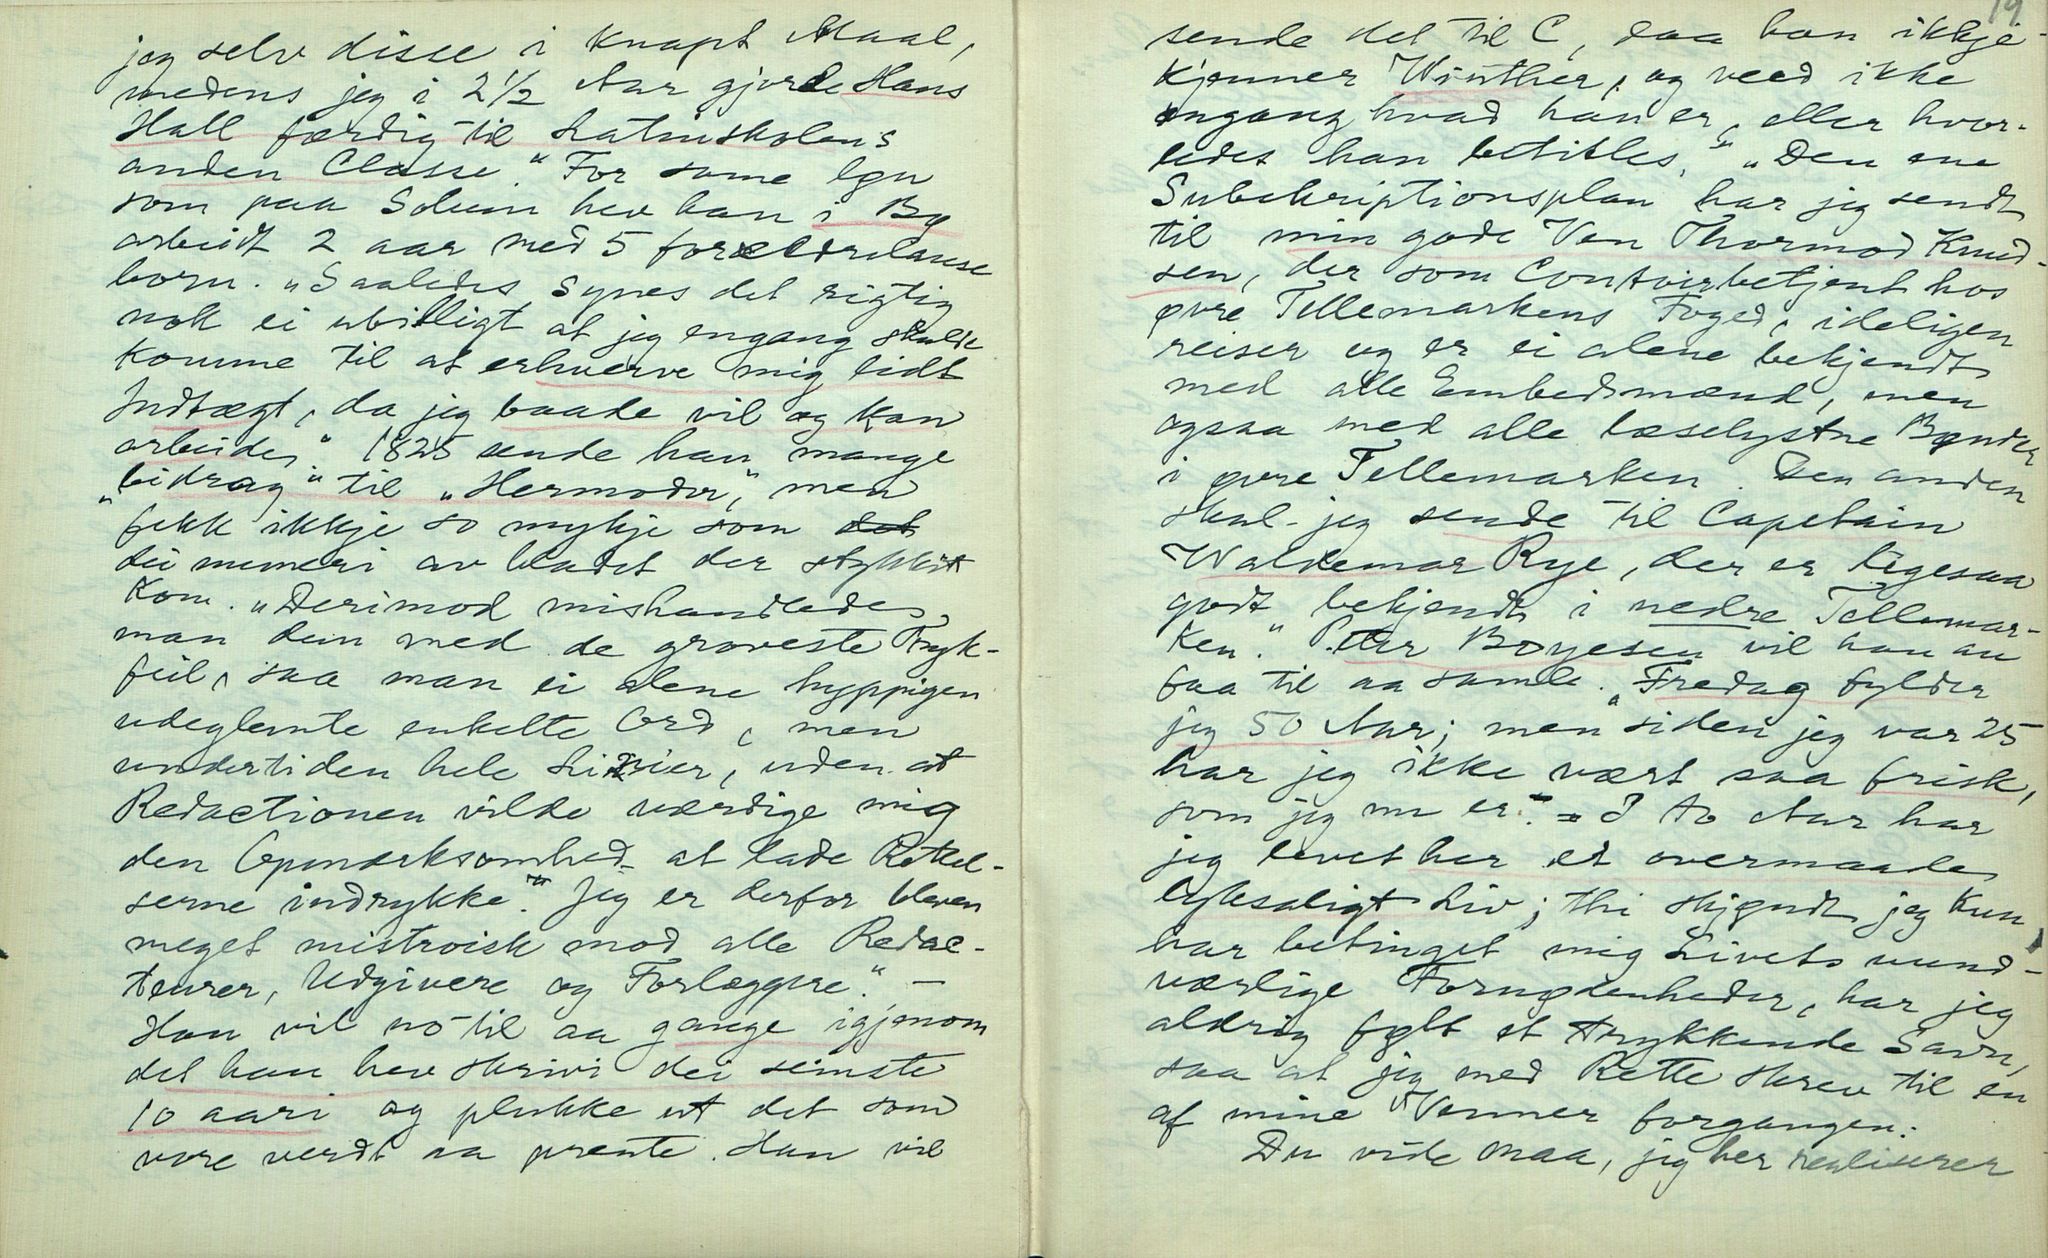 jeg selv disse i knapt Maal,
medens jeg i 2½ Aar gjorde Hans
Hall færdig til Latinskolens
anden Classe." For same løn
som paa Solum hev han i Bø
arbeidt 2 aar med 5 foreldrelause
born. "Saaledes synes det rigtig
nok ei ubilligt at jeg engang skulde
komme til at erhverve mig lidt
Indtægt, da jeg baade vil og kan
arbeide." 1825 sende han mange
"bidrag" til "Hermoder", men
fekk ikkje so mykje som det
dei numeri av bladet der stykki
kom. "Derimod mishandledes
man dem med de groveste Tryk-
feil, saa man ei alene hyppigen
udeglemte enkelte Ord, men
undertiden hele Linier, uden at
Redactionen vilde værdige mig
den Opmærksomhed at lade Rettel-
serne indrykke." Jeg er derfor bleven
meget mistroisk mod alle Redac-
teurer, Udgivere og Forlæggere." —
Han vil no til aa gange igjenom
det han hev skrivi dei seinste
10 aari og plukke ut det som
vore verdt aa prente. Han vil
19
sende det til C, daa han ikkje
kjenner Winther, og veed ikke
engang hvad han er, eller hvor-
ledes han betitles." "Den ene
Subskriptionsplan har jeg sendt
til min gode Ven Thormod Knud-
sen, der som Contoirbetjent hos
øvre Tellemarkens Foged, ideligen
reiser og er ei alene bekjendt
med alle Embedsmænd, men
ogsaa med alle læselystne Bønder
i øvre Tellemarken. Den anden
skal jeg sende til Capetain
Waldemar Rye, der er ligesaa
godt bekjendt i nedre Tellemar-
ken." Peter Boyesen vil han au
faa til aa samle. "Fredag fylder
jeg 50 Aar; men siden jeg var 25
har jeg ikke vært saa frisk,
som jeg nu er. – I to Aar har
jeg levet her et overmaade
lyksaligt Liv; thi skjøndt jeg kun
har betinget mig Livets uund-
værlige Fornødenheder, har jeg
aldrig følt et trykkende Savn,
saa at jeg med Rette skrev til en
af mine Venner forgangen:
Du vide maa, jeg her realiserer